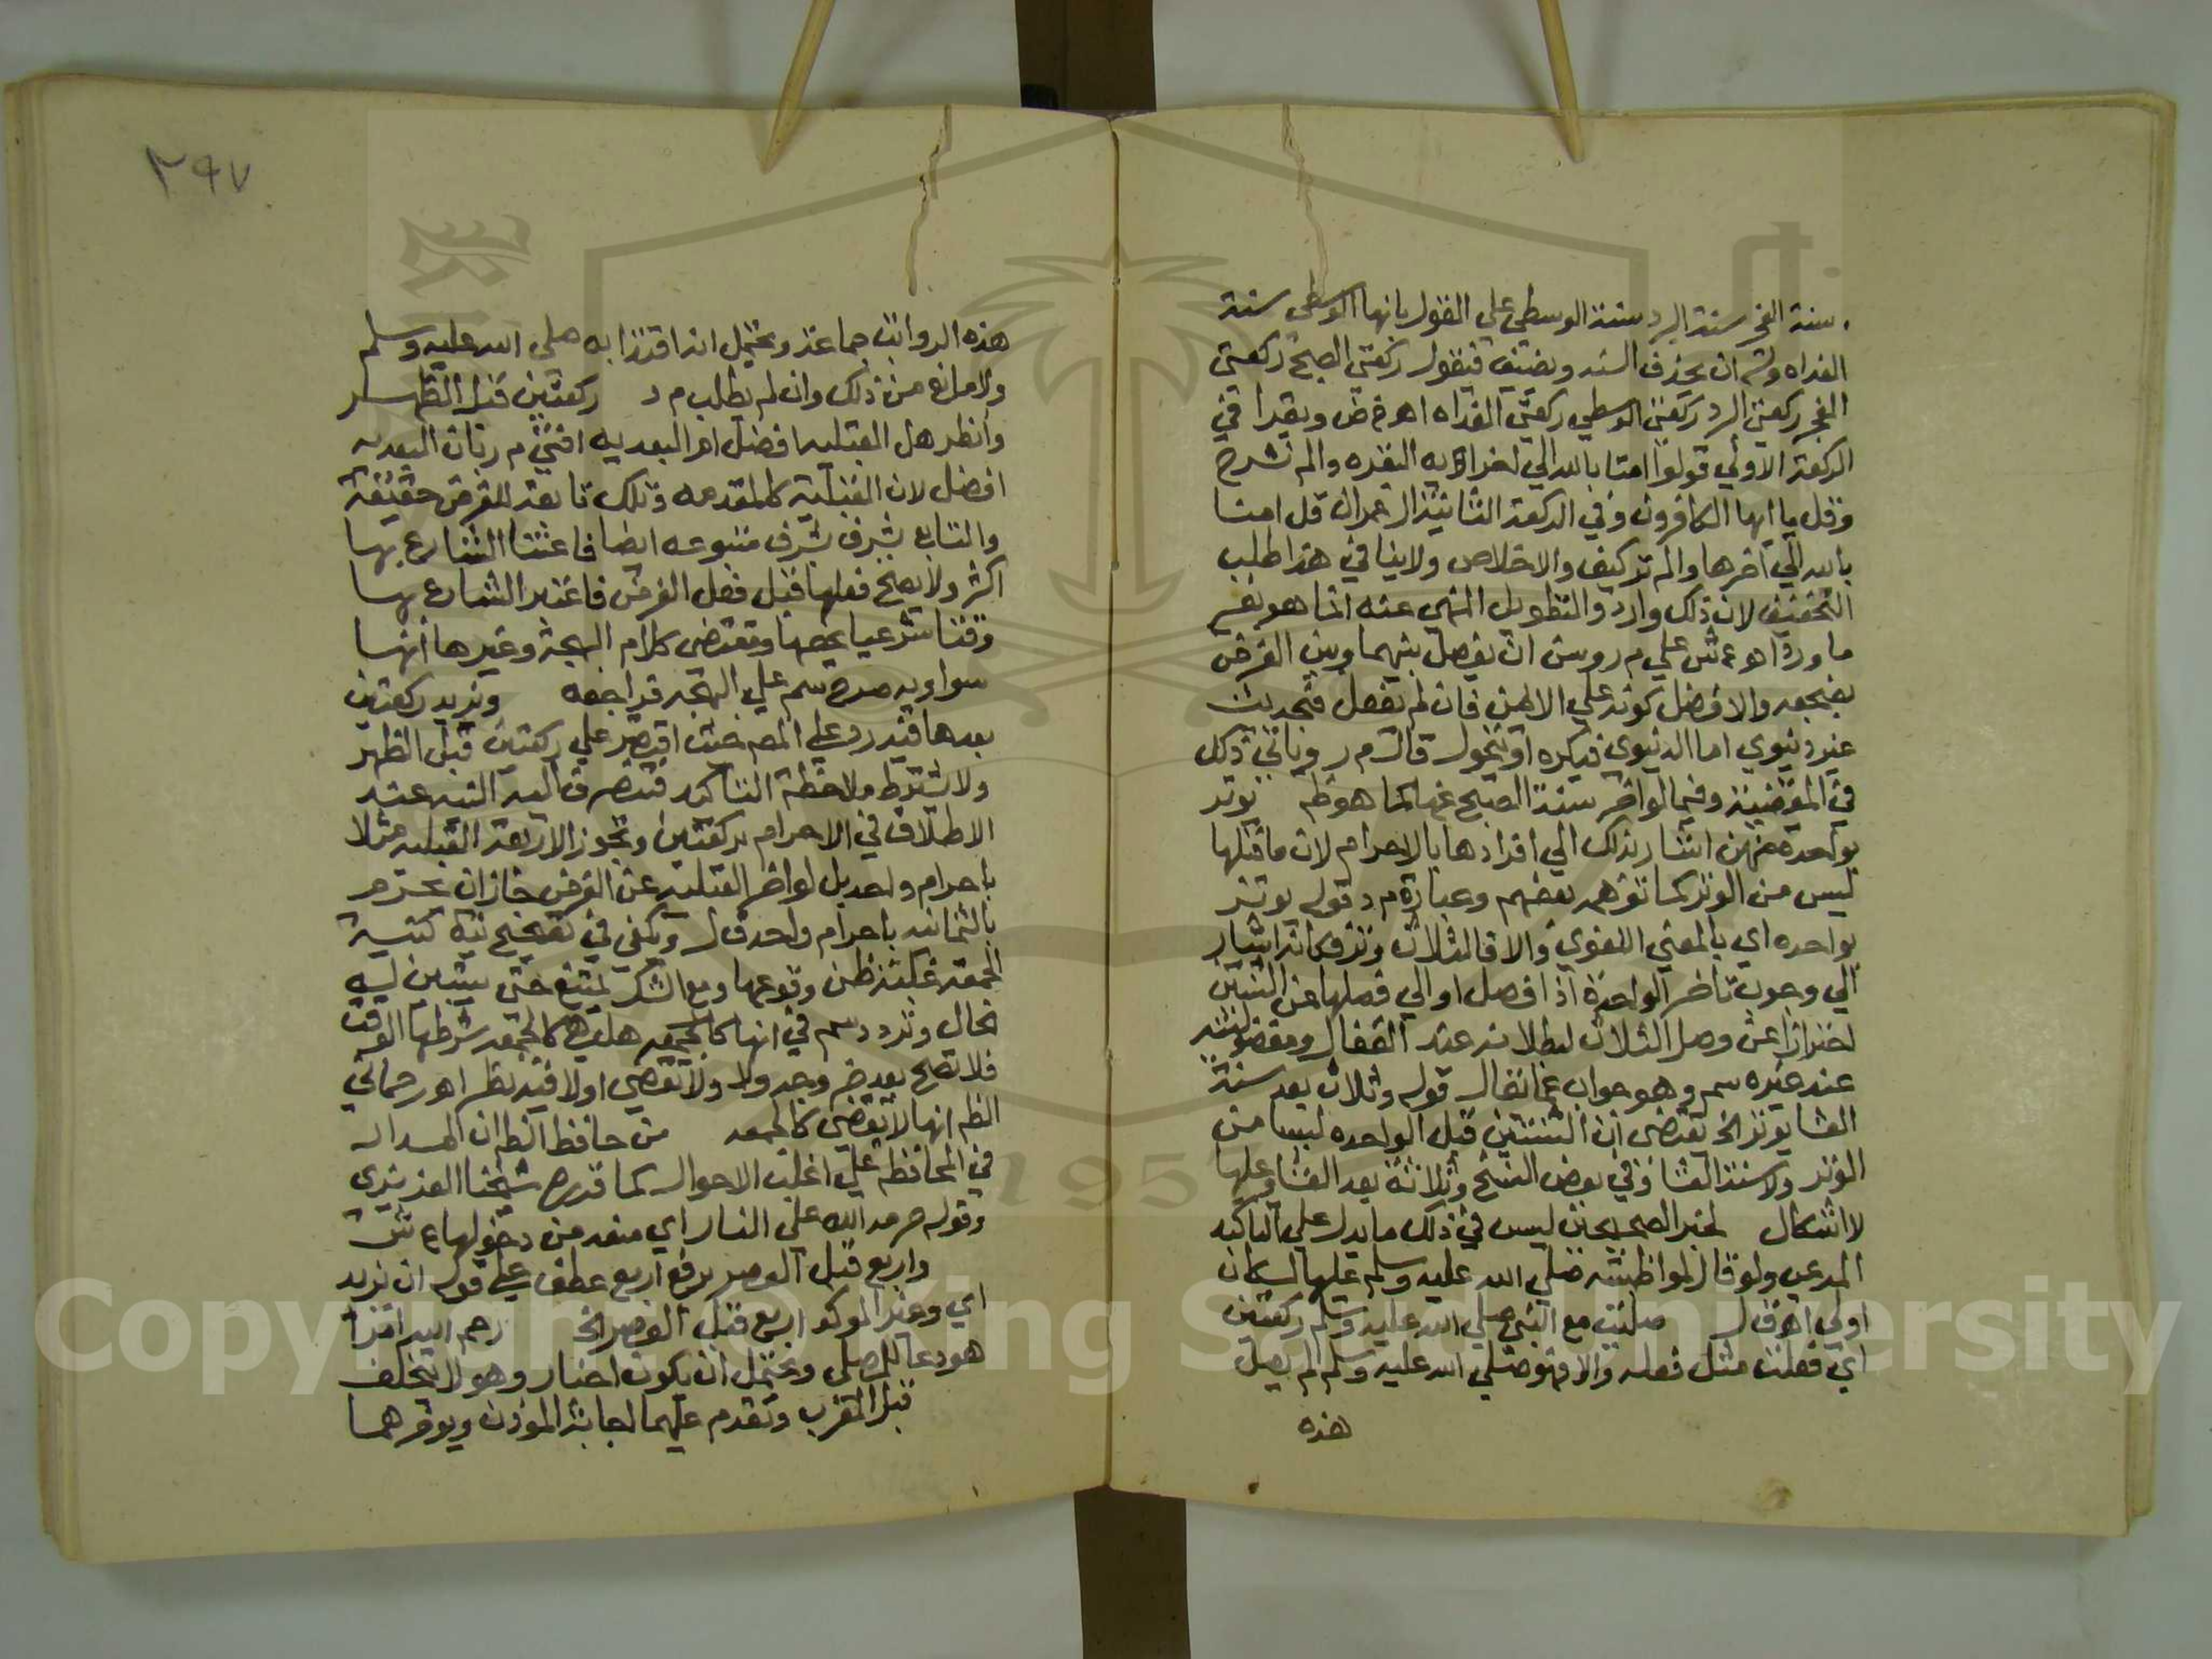 سنة الفجر سنة البرد سنة الوسطي علي القول بانها الوسطي سنة
الغداه وله ان يحذف السنه ويضيف فيقول ركعتي الصبح ركعتي
الفجر ركعتي البرد ركعتي الوسطي ركعتي الغداه اهـ ويقرا في
الركعة الاولي قولوا امنا بالله الي اخراية البقره والم نشرح
وقل يا ايها الكافرون وفي الركعة الثانية ال عمران قل امنا
بالله الي اخرها والم تركيف والاخلاص ولاينافي هذا طلب
التخفيف لان ذلك وارد والتطويل المنهي عنه انما هو بغير
ما ورد اهـ ع ش علي م ر ويسن ان يفصل بينهما وبين الفرض
بضجعه والافضل كونه علي الايمن فان لم يفعل فبحديث
غير دنيوي اما الدنيوي فيكره او بتحول قال م ر وياتي ذلك
في المقضية وفيما لو اخر سنة الصبح عنها كما هو ظم يوتر
بواحدة منهن اشار بذلك الي افرادها بالاحرام لان ما قبلها
ليس من الوتر كما توهم بعضهم وعبارة م د قوله يوتر
بواحده اي بالمعني اللغوي والا فالثلاث وتر فكانه اشار
الي وجوب تاخر الواحدة اذا فصل او الي فصلها عن الثنتين
احترازا عن وصل الثلاث لبطلانه عند القفال ومفضوليته
عند غيره سم وهو جواب عما يقال قوله وثلاث بعد سنة
العشا يوتر الخ يقتضي ان الثنتين قبل الواحده ليسا من
الوتر ولا سنة العشا وفي بعض النسخ وثلاثة بعد العشا وعليها
لا اشكال لخبر الصحيحين ليس في ذلك ما يدل علي التاكيد
المدعي ولو قال لمواظبته صلي الله عليه وسلم عليها لكان
اولي اهـ ق ل صليت مع النبي صلي الله عليه وسلم ركعتين
اي فعلت مثل فعله والا فهو صلي الله عليه وسلم لم يصل
هذه
٣٩٧
هذه الرواتب جماعة ويحتمل انه اقتدا به صلي الله عليه وسلم
ولا مانع من ذلك وان لم يطلب م د ركعتين قبل الظهر
وانظر هل القبليه افضل ام البعديه افتي م ر بان البعديه
افضل لان القبلية كالمقدمه وتلك تابعة للفرض حقيقة
والتابع يشرف بشرف متبوعه ايضا فاعتنا الشارع بها
اكثر ولا يصح فعلها قبل فعل الفرض فاعتبر الشارع لها
وقتا شرعيا يخصها ومقتضي كلام البهجة وغيرها انهما
سوا وبه صرح سم علي البهجه فراجعه ويزيد ركعتين
بعدها فيه رد علي المص حيث اقتصر علي ركعتين قبل الظهر
ولا يشترط ملاحظة التاكيد فتنصرف اليه النيه عند
الاطلاق في الاحرام بركعتين ويجوز الاربعة القبليه مثلا
باحرام واحد بل لو اخر القبليه عن الفرض جاز ان يحرم
بالثمانيه باحرام واحد ق ل ويكفي في تصحيح نية قبلية
الجمعه غلبة ظن وقوعها ومع الشك يمتنع حتي يتبين له
الحال وتردد سم في انها كالجمعه هل هي كالجمعه شرطها الوقت
فلا تصح بعد خروجه ولا ولا تقضي او لا فيه نظر اهـ رحماني
الظم انها لا تقضي كالجمعه من حافظ الظم ان المدار
في المحافظه علي اغلب الاحوال كما قرره شيخنا العزيزي
وقوله حرمه الله علي النار اي منعه من دخولها ع ش
واربع قبل العصر برفع اربع عطف علي قوله ان يزيد
اي وغير الموكد اربع قبل العصر الخ رحم الله امرا
هو دعا للمصلي ويحتمل ان يكون اخبار وهو لا يتخلف
قبل المغرب وتقدم عليهما اجابة الموذن ويوخرهما
Copyright © King Saud University
195